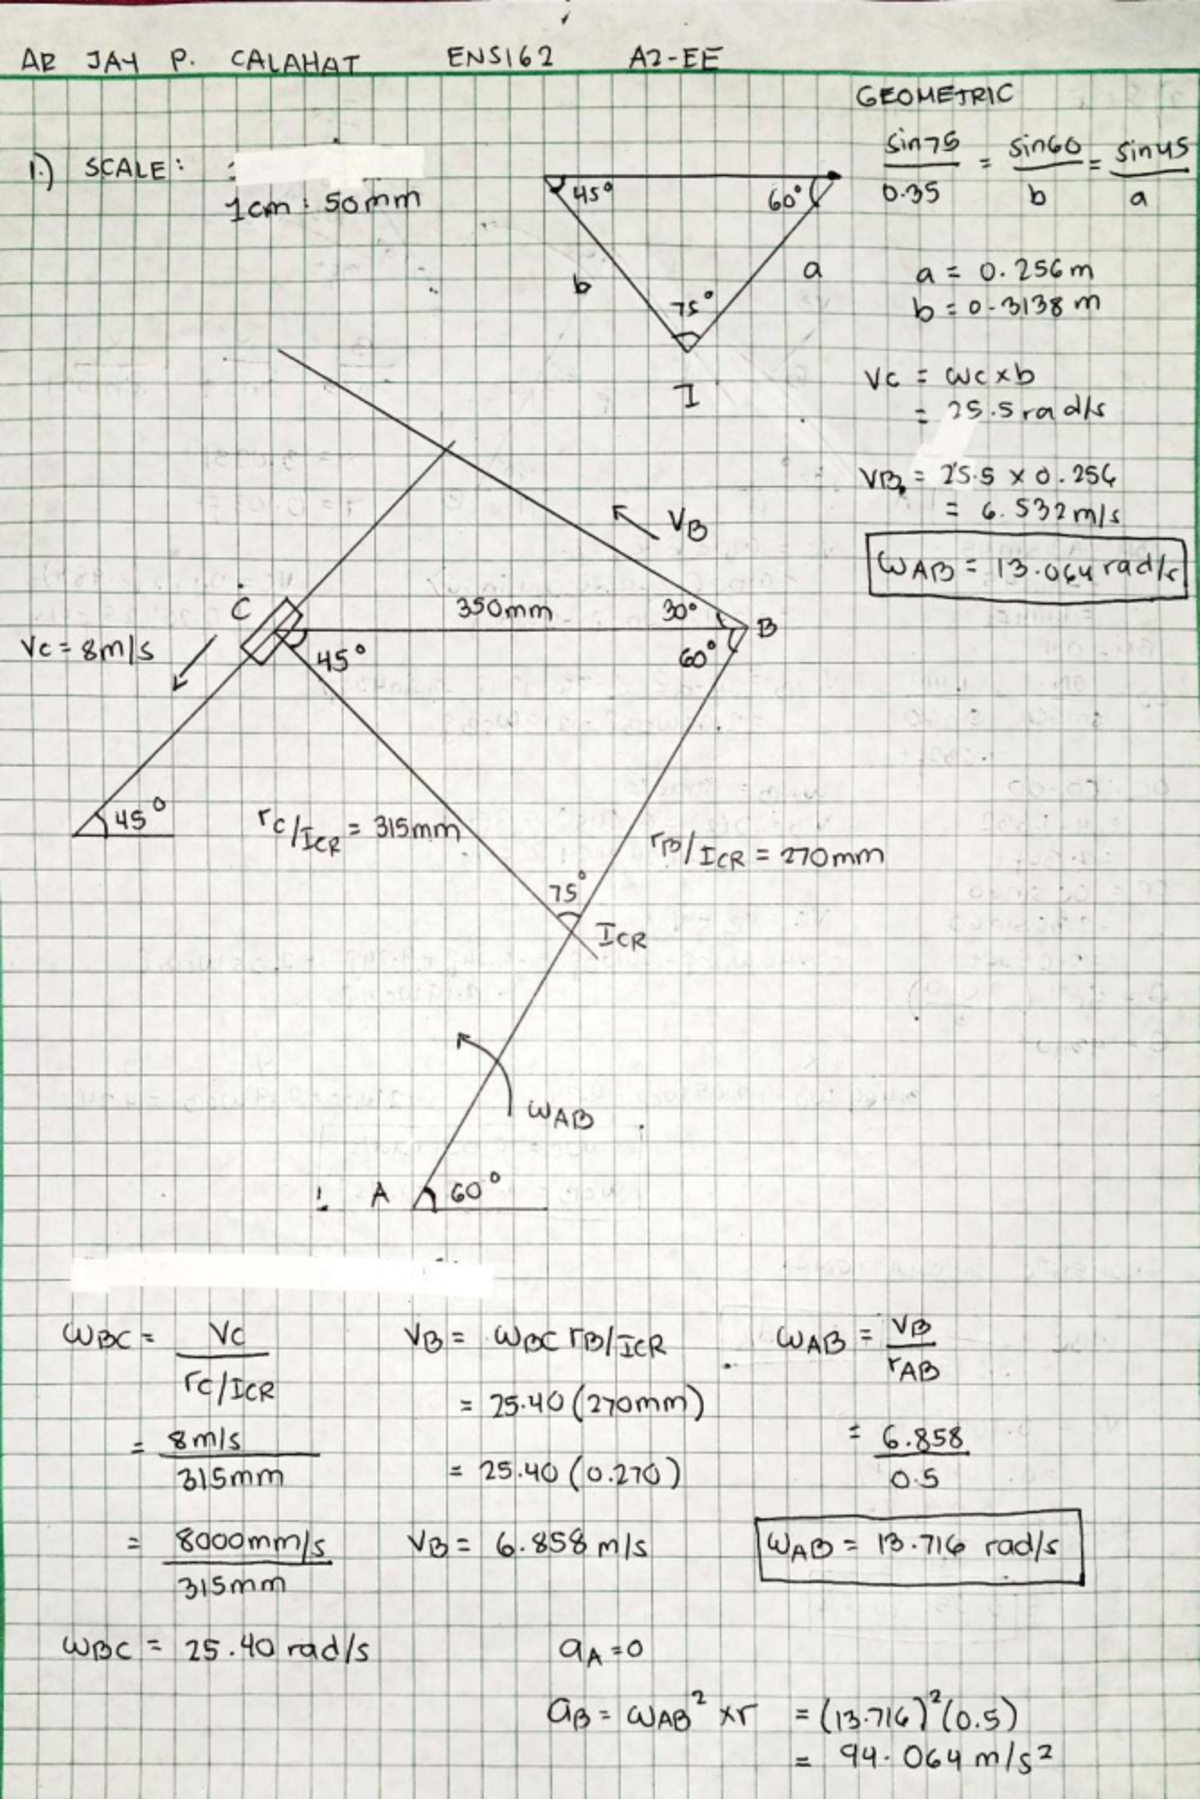 AR JAY P. CALAHAT ENS162 A2-EE
GEOMETRIC
1.) SCALE :
1cm : 50mm
45° 60°
b a
75°
I
sin75/0.35 = sin60/b = sin45/a
a = 0.256m
b = 0.3138m
VC = ωc x b
= 25.5 rad/s
VB = 25.5 x 0.256
= 6.532 m/s
ωAB = 13.064 rad/s
VB
C
350mm 30° B
VC = 8m/s
45° 60°
45°
rC/ICR = 315mm
rB/ICR = 270mm
75°
ICR
ωAB
A 60°
ωBC = VC / rC/ICR
= 8m/s / 315mm
= 8000mm/s / 315mm
ωBC = 25.40 rad/s
VB = ωBC rB/ICR
= 25.40 (270mm)
= 25.40 (0.270)
VB = 6.858 m/s
ωAB = VB / rAB
= 6.858 / 0.5
ωAB = 13.716 rad/s
aA = 0
aB = ωAB² x r = (13.716)²(0.5)
= 94.064 m/s²